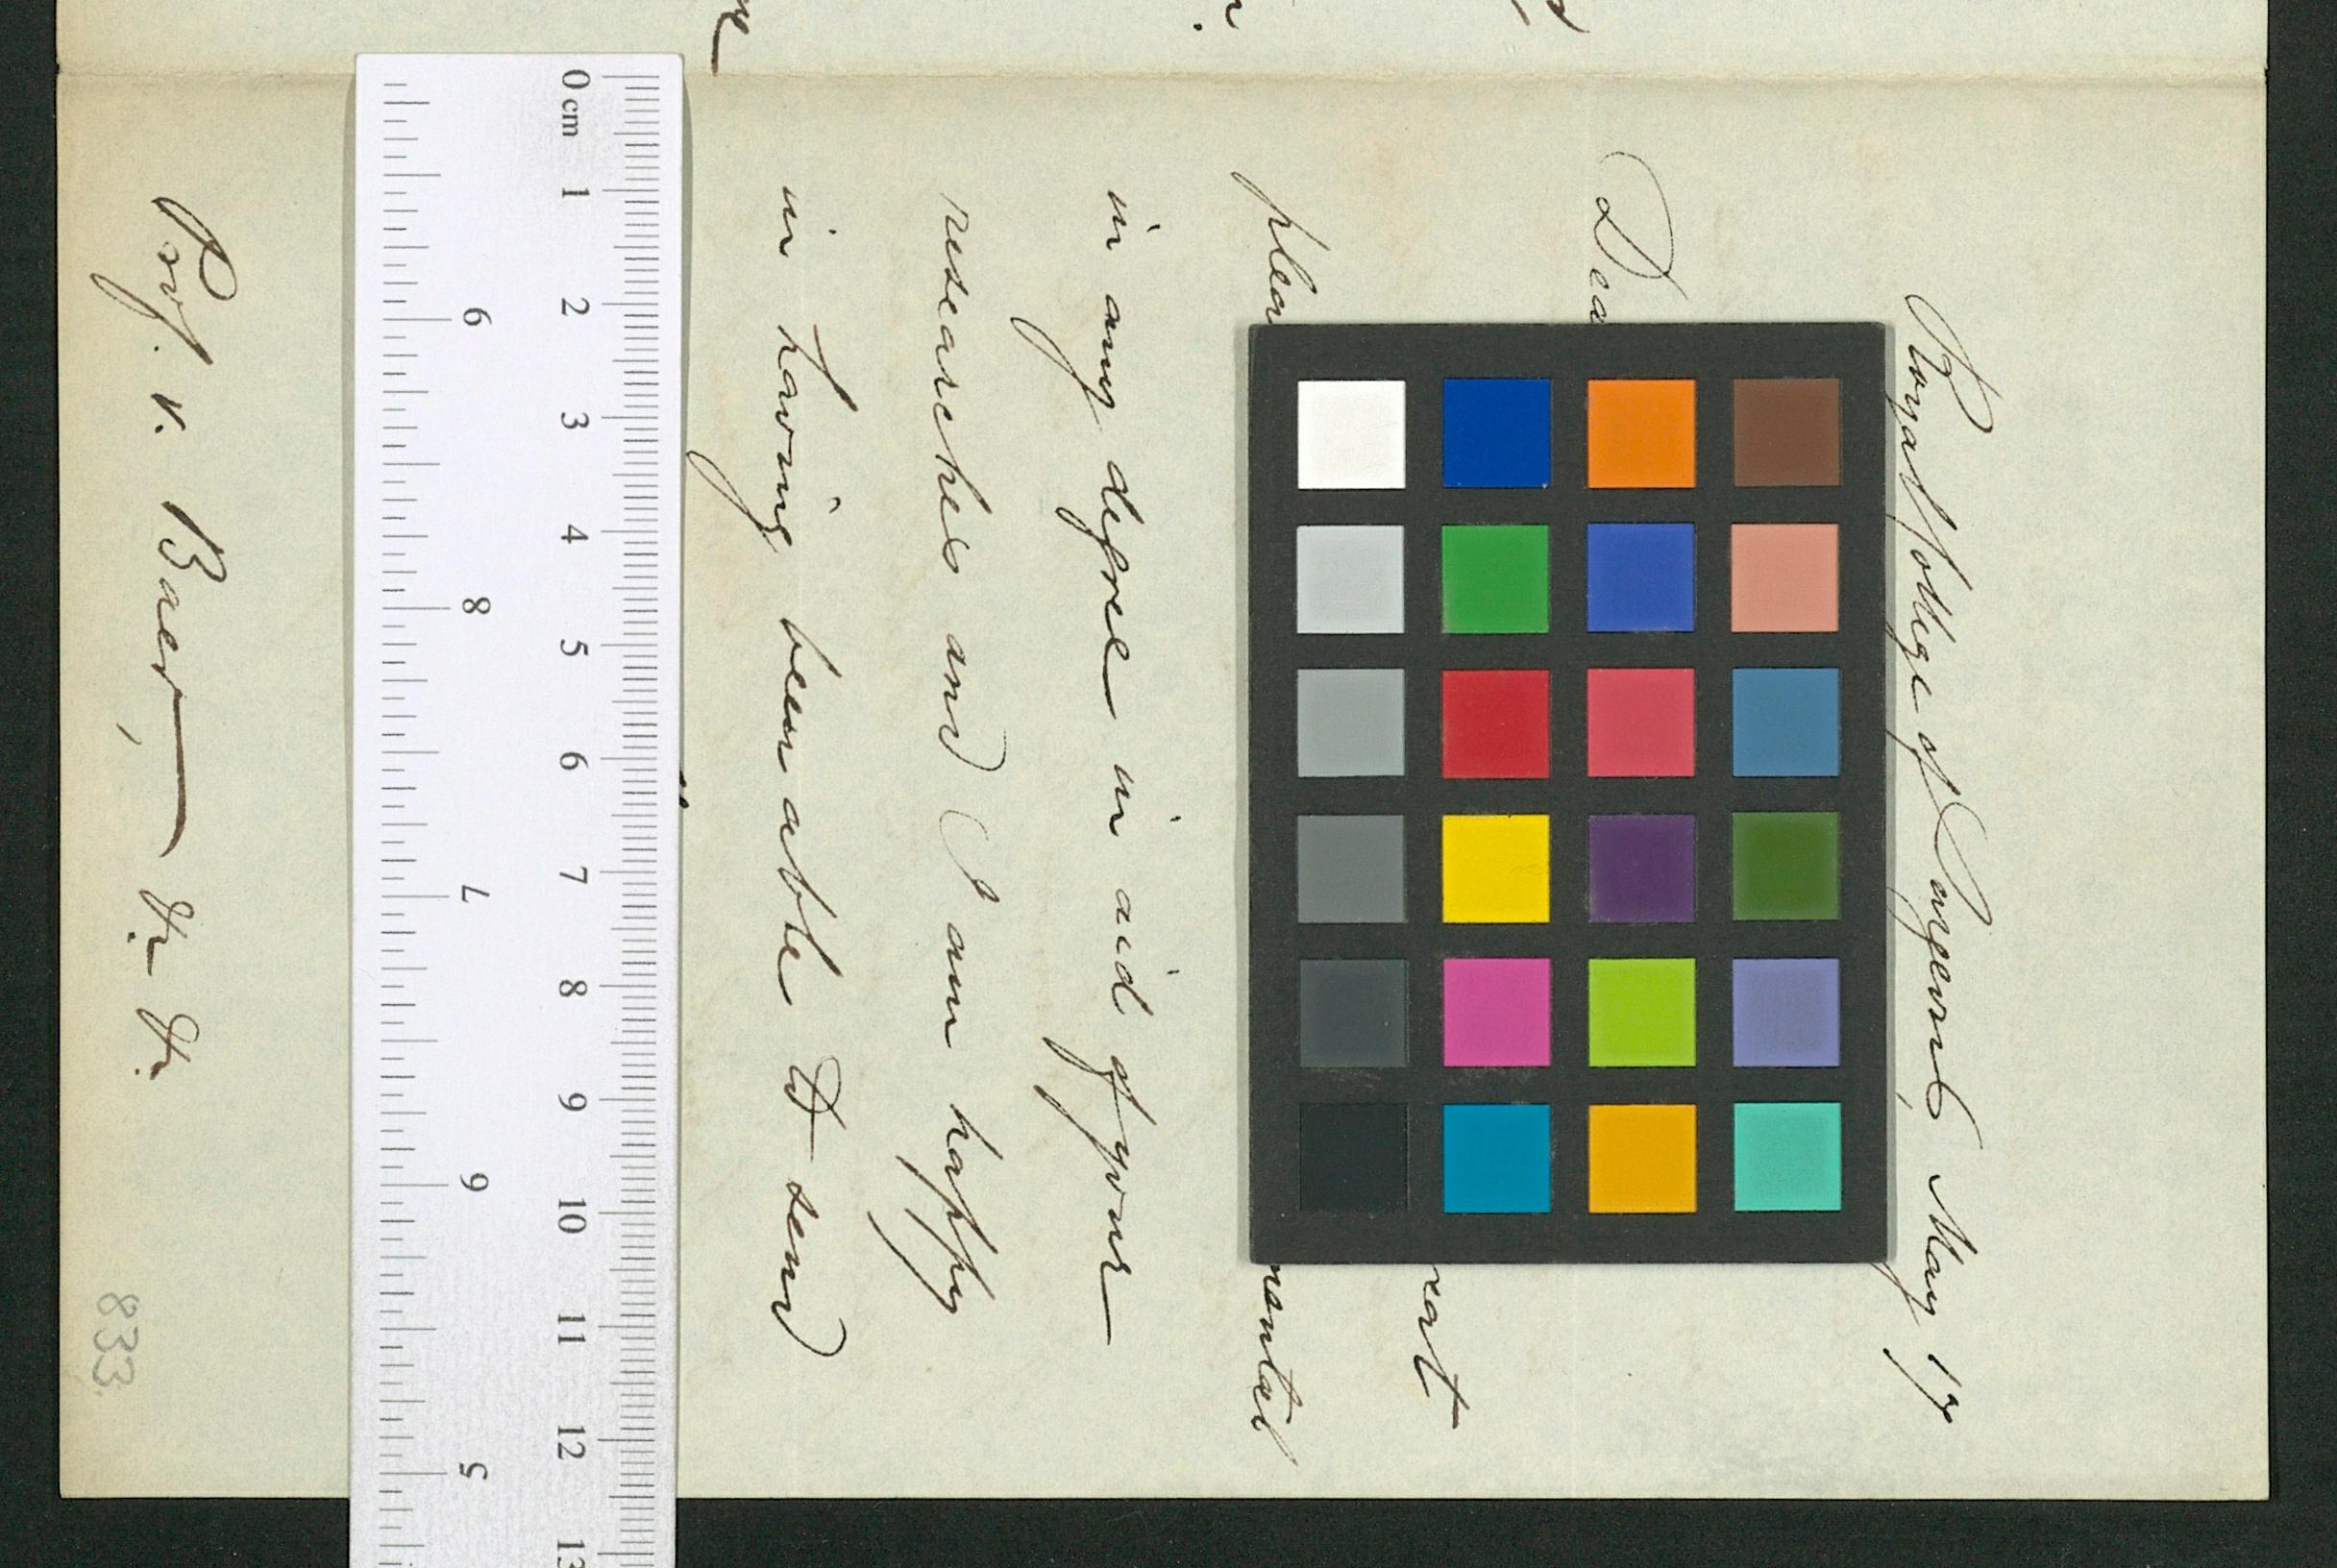 Royal College of Surgeons, May 17
Dea
plea mental
in any degree in aid of your
researches and I am happy
in having been able to send
0 cm 1 2 3 4 5 6 7 8 9 10 11 12 13
5 6 7 8 9
Prof. v. Baer, &c. &c.
833.